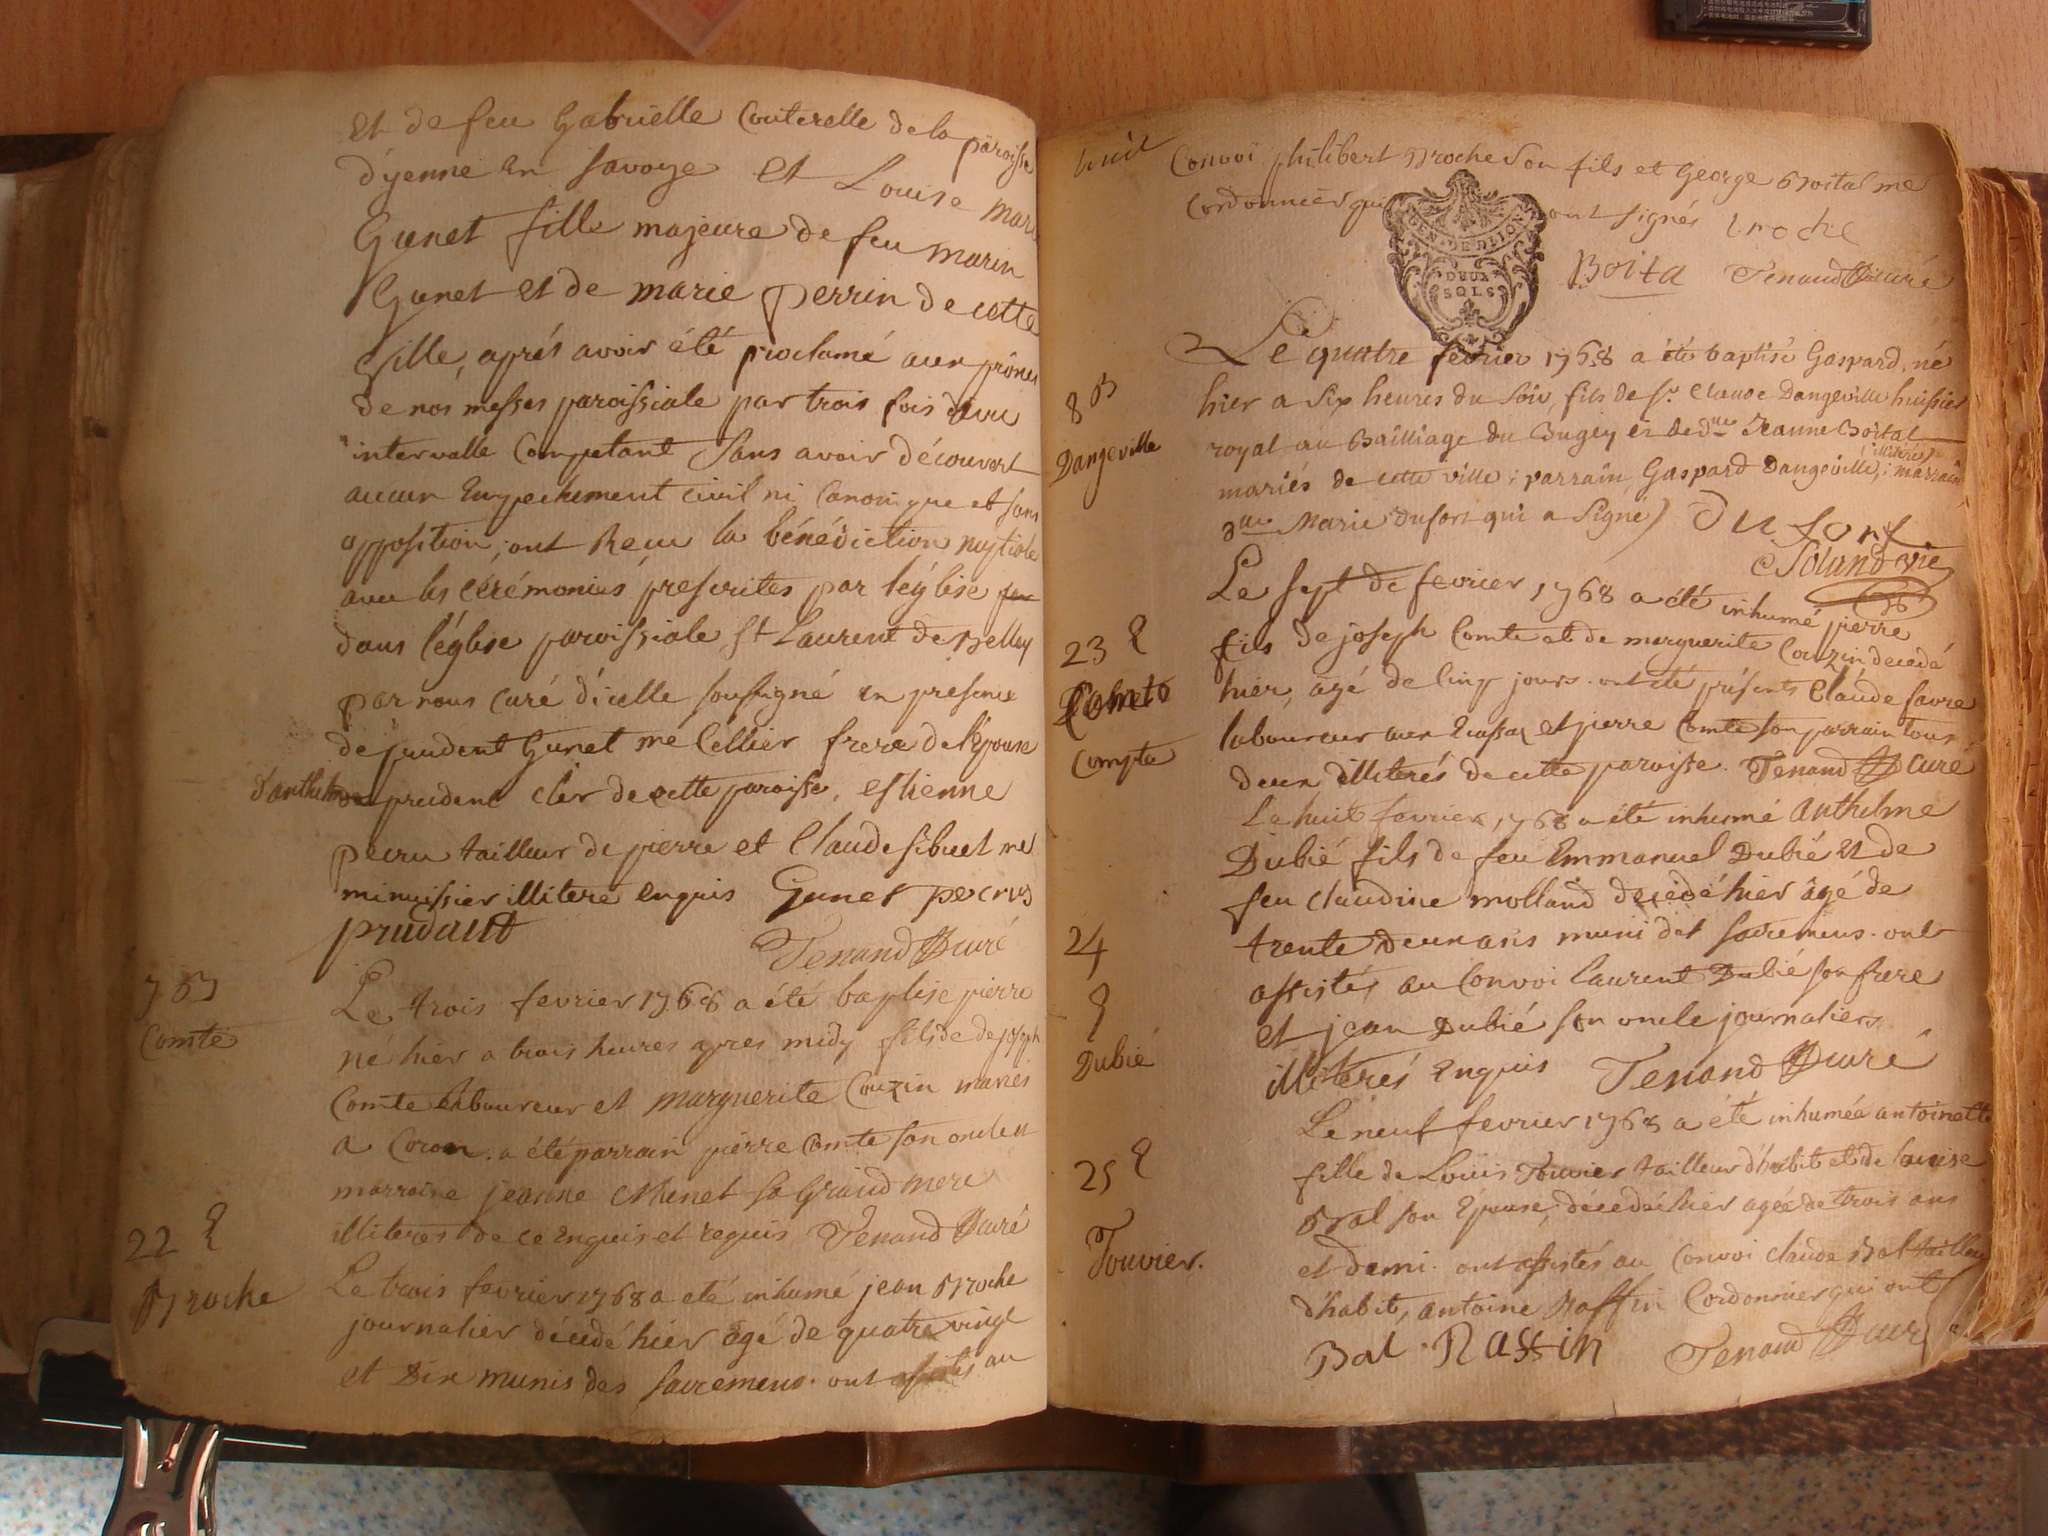 et de feu Gabrielle Couterelle de la paroisse
d'yenne en Savoye et Louise Marie
Gunet fille majeure de feu marin
Gunet et de marie perrin de cette
ville, aprés avoir été proclamé aux prônes
de nos messes paroissiale par trois fois
intervalle Competant Sans avoir découvert
aucun Empechement civil ni Canonique et sans
opposition, ont Recu la bénédiction nuptiale
avec les cérémonies prescrites par léglise
dans l'église paroissiale St Laurent de Belley
par nous curé d'icelle soussigné en presence
de prudent Gunet me Cellier frere de l'Epouse
d'anthelme prudent cler de cette paroisse, estienne
pecru tailleur de pierre et Claude sibuet me
minuissier illiteré enquis Gunet pecrus
prudant
Tenand Curé
7 B
Comte
Le trois fevrier 1768 a été baptise pierre
né hier a trois heures apres midy fils de de joseph
Comte laboureur et marguerite Couzin mariés
a Coron. a été parrain pierre Comte son oncle et
marraine jeanne Menet sa Grand mere
illiteres de ce enquis et requis Tenand Curé
22 E
Broche
Le trois fevrier 1768 a eté inhumé jean Broche
journalier décedé hier agé de quatre vingt
et dix munis des sacremens. ont assistés au
huit
Convoi philibert Broche Son fils et George Boital me
Cordonnier qui ont signés broche
GEN. DE DIJON
DEUX
SOLS
Boita Tenand Curé
8 B
Dangeville
Le quatre fevrier 1768 a été baptisé Gaspard, né
hier a Six heures du Soir, fils de Sr. Claude Dangeville huissier
royal au Bailliage du Bugey et de dlle Jeanne Boital
mariés de cette ville; parrain Gaspard Dangeville, (illitéré); marraine
dlle Marie dufort qui a signé) Du fort
Le sept de fevrier 1768 a été inhumé pierre
23 E
Comte
Compte
fils de joseph Comte et de marguerite Couzin decedé
hier, agé de Cinq jours. ont été présents Claude favre
laboureur et pierre Comte son parrain tous
deux illiterés de cette paroisse. Tenand Curé
24
E
Dubié
Le huit fevrier 1768 a été inhumé Anthelme
Dubié fils de feu Emmanuel Dubié et de
feu claudine molland decedé hier âgé de
trente deux ans muni des sacremens. ont
assistés au Convoi laurent Dubié son frere
et jean Dubié son oncle journaliers
illiterés enquis Tenand Curé
25 E
Touvier.
Le neuf fevrier 1768 a été inhumée antoinette
fille de Louis Touvier tailleur d'habit et de louise
Bal son Epouse, décedée hier agée de trois ans
et demi. ont assistés au Convoi claude Bal tailleur
d'habit, antoine Raffin Cordonnier qui ont
Bal Raffin Tenand Curé